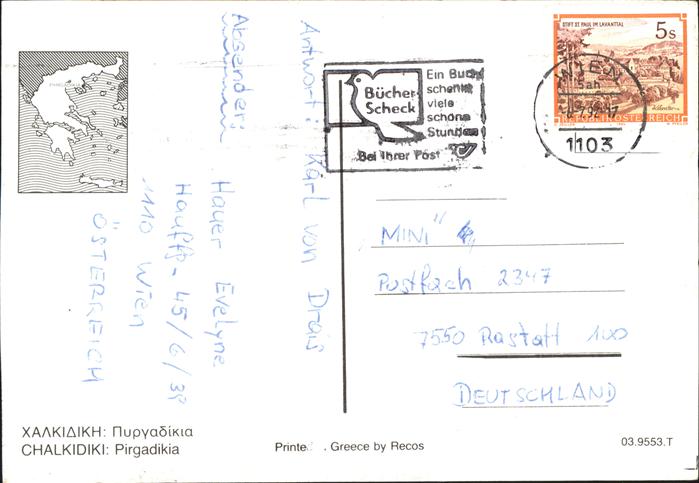 Absender:
Hauer Evelyne
Hauffg- 45/6/38
1110 Wien
ÖSTERREICH
Antwort: Karl von Drais
Bücher
Scheck
Ein Buch
schenkt
viele
schöne
Stunden
Bei Ihrer Post
WIEN
1103
STIFT ST. PAUL IM LAVANTTAL
5s
REPUBLIK ÖSTERREICH
"MINI"
Postfach 2347
7550 Rastatt 100
DEUTSCHLAND
ΧΑΛΚΙΔΙΚΗ: Πυργαδίκια
CHALKIDIKI: Pirgadikia
Printed Greece by Recos
03.9553.T